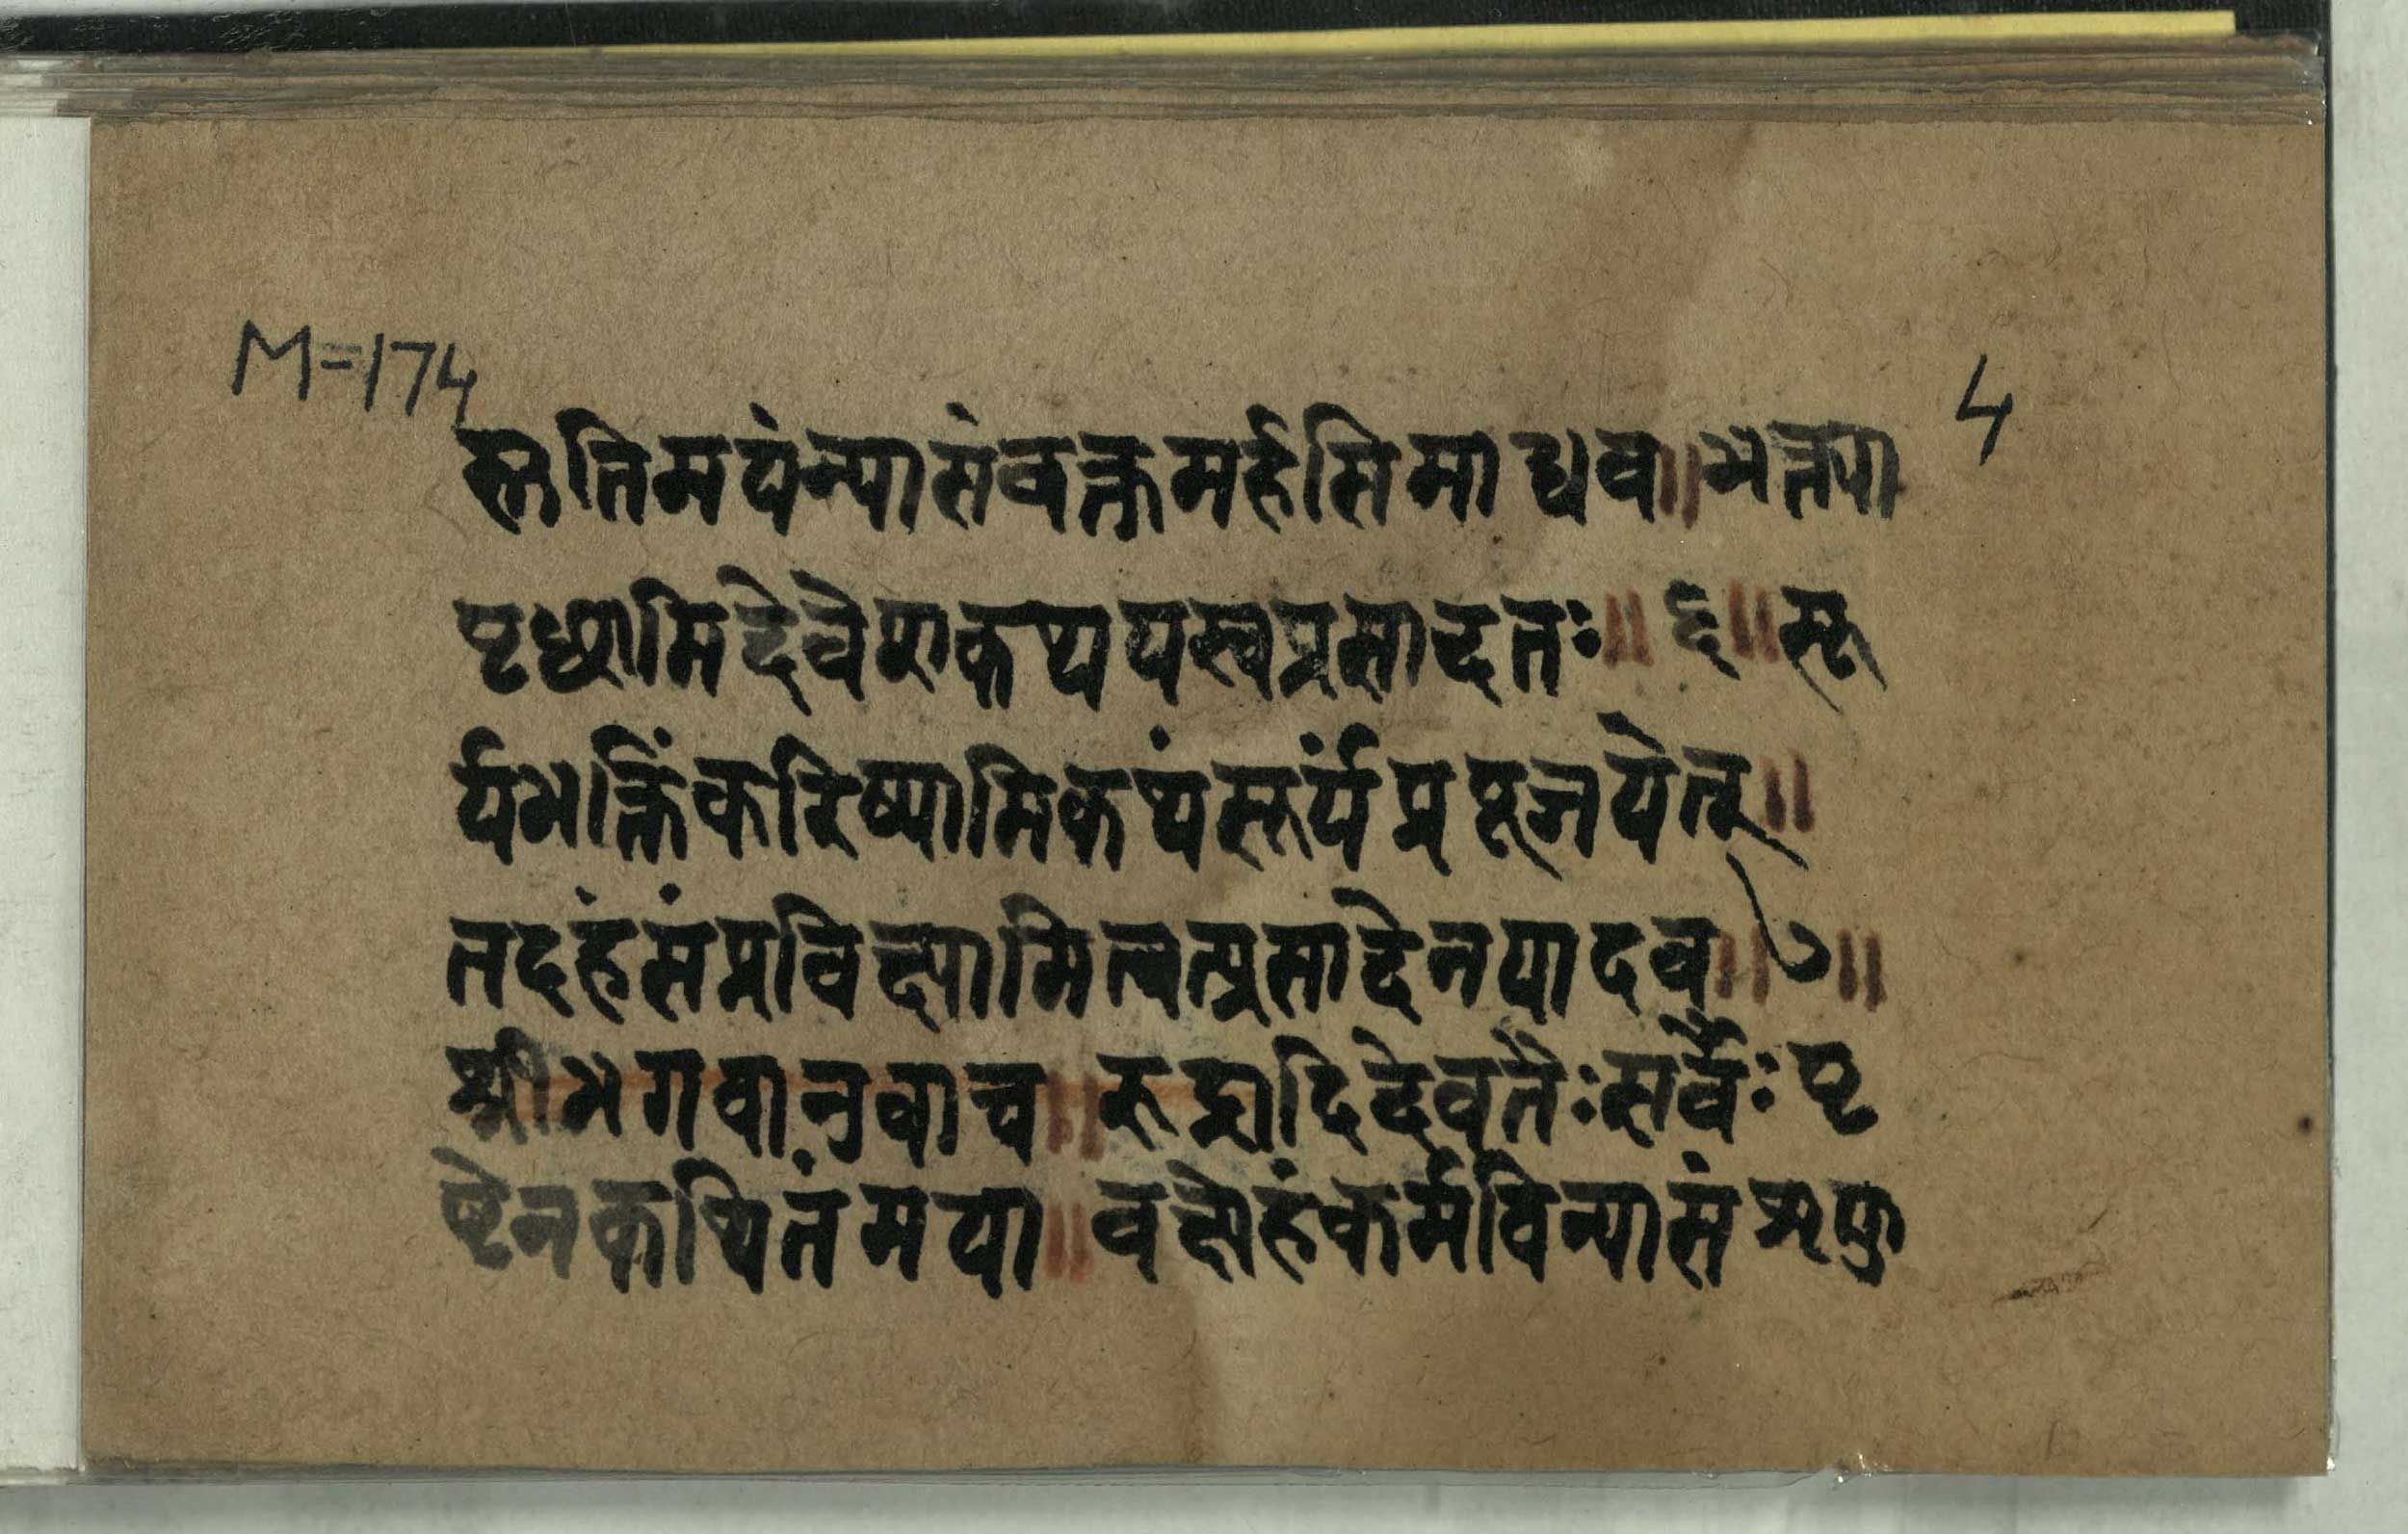 M=174
4
स्तुतिमयंन्यासंवक्तुमर्हसिमाधव॥भक्त्या
पृछामिदेवेशकथयस्वप्रसादतः॥६॥सू
र्यभक्तिंकरिष्यामिकथंसूर्यंप्रपूजयेत्॥
तदहंसंप्रवक्ष्यामित्वत्प्रसादेनयादव॥७॥
श्रीभगवानुवाच॥रुद्रादिदेवतैःसर्वैःपृ
ष्टेनकथितंमया॥वक्ष्येहंकर्मविन्यासंशृणु